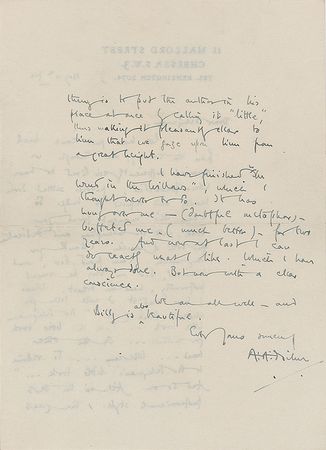 11 MALLORD STREET
CHELSEA, S.W.3.
TEL. KENSINGTON 2074.
thing is to put the author in his
place at once by calling it "little",
thus making it pleasantly clear to
him that we gaze upon him from
a great height.
I have finished "The
Wind in the Willows", which I
thought never to do. It has
hung over me — (doubtful metaphor) —
buffeted me (much better) — for two
years. And now at last I can
do exactly what I like. Which I have
always done. But now with a clear
conscience.
We are all well — and
Billy is also beautiful.
Ever yours sincerely
A.A. Milne